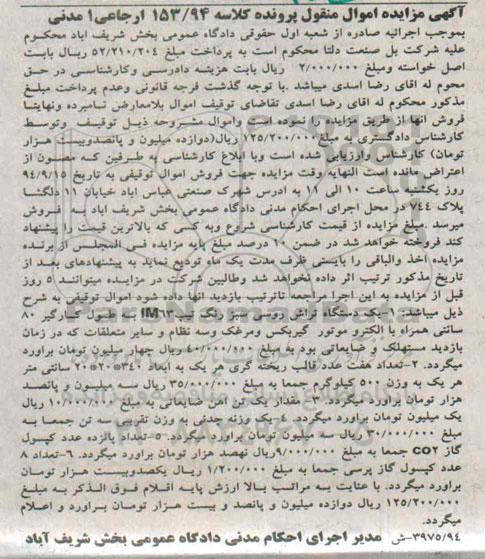 آگهی مزایده اموال منقول پرونده کلاسه ۱۵۳/۹۴ ارجاعی۱ مدنی
بموجب اجرائیه صادره از شعبه اول حقوقی دادگاه عمومی بخش شریف اباد محکوم
علیه شرکت بل صنعت دلتا محکوم است به پرداخت مبلغ ۵۲/۲۱۰/۲۰۴ ریال بابت
اصل خواسته ومبلغ ۲/۰۰۰/۰۰۰ ریال بابت هزینه دادرسی وکارشناسی در حق
محوم له اقای رضا اسدی میباشد .با توجه گذشت فرجه قانونی وعدم پرداخت مبلغ
مذکور محکوم له اقای رضا اسدی تقاضای توقیف اموال بلامعارض نامبرده ونهایتا
فروش انها از طریق مزایده را نموده است واموال مشروحه ذیل توقیف وتوسط
کارشناس دادگستری به مبلغ ۱۲۵/۲۰۰/۰۰۰ ریال(دوازده میلیون و پانصدوبیست هزار
تومان) کارشناس وارزیابی شده است وبا ابلاغ کارشناسی به طرفین که مصون از
اعتراض مانده است النهایه وقت مزایده جهت فروش اموال توقیفی به تاریخ ۹۴/۹/۱۵
روز یکشنبه ساعت ۱۰ الی ۱۱ به ادرس شهرک صنعتی عباس اباد خیابان ۱۱ دلگشا
پلاک ۷۴۴ در محل اجرای احکام مدنی دادگاه عمومی بخش شریف آباد به فروش
میرسد .مبلغ مزایده از قیمت کارشناسی شروع وبه کسی که بالاترین قیمت را پیشنهاد
کند فروخته خواهد شد در ضمن ۱۰ درصد مبلغ پایه مزایده فی المجلس از برنده
مزایده اخذ والباقی را بایستی ظرف مدت یک ماه تودیع نماید به پیشنهادهای بعد از
تاریخ مذکور ترتیب اثر داده نخواهد شد وطالبین شرکت در مزایده میتوانند ۵ روز
قبل از مزایده به این اجرا مراجعه تاترتیب بازدید انها داده شود اموال توقیفی به شرح
ذیل میباشد: ۱-یک دستگاه تراش روسی سبز رنگ تیپ IM۶۳ به طول کارگیر ۸۰
سانتی همراه با الکترو موتور گیربکس ومرغک وسه نظام و سایر متعلقات که در زمان
بازدید مستهلک و ضایعاتی بود به مبلغ ۴۰/۰۰۰/۰۰۰ ریال چهار میلیون تومان براورد
میگردد. ۲-تعداد هفت عدد قالب ریخته گری هر یک به ابعاد ۳۴۰*۲۰*۲۰ سانتی متر
هر یک به وزن ۵۰۰ کیلوگرم جمعا به مبلغ ۳۵/۰۰۰/۰۰۰ ریال سه میلیون و پانصد
هزار تومان براورد میگردد ۳-مقدار یک تن اهن ضایعاتی به مبلغ ۱۰/۰۰۰/۰۰۰ ریال
یک میلیون تومان براورد میگردد ۴-یک وزنه چدنی به وزن تقریبی سه تن جمعا به
مبلغ ۳۰/۰۰۰/۰۰۰ ریال سه میلیون تومان براورد میگردد. ۵-تعداد پانزده عدد کپسول
گاز CO۲ جمعا به مبلغ ۹/۰۰۰/۰۰۰ریال نهصد هزار تومان براورد میگردد. ۶-تعداد ۸
عدد کپسول گاز پرسی جمعا به مبلغ ۱/۲۰۰/۰۰۰ ریال یکصدوبیست هزار تومان
براورد میگردد. با عنایت به مراتب بالا ارزش پایه اقلام فوق الذکر به مبلغ
۱۲۵/۲۰۰/۰۰۰ ریال دوازده میلیون و پانصد و بیست هزار تومان براورد و اعلام
میگردد.
۳۹۷۵/۹۴-ش مدیر اجرای احکام مدنی دادگاه عمومی بخش شریف آباد